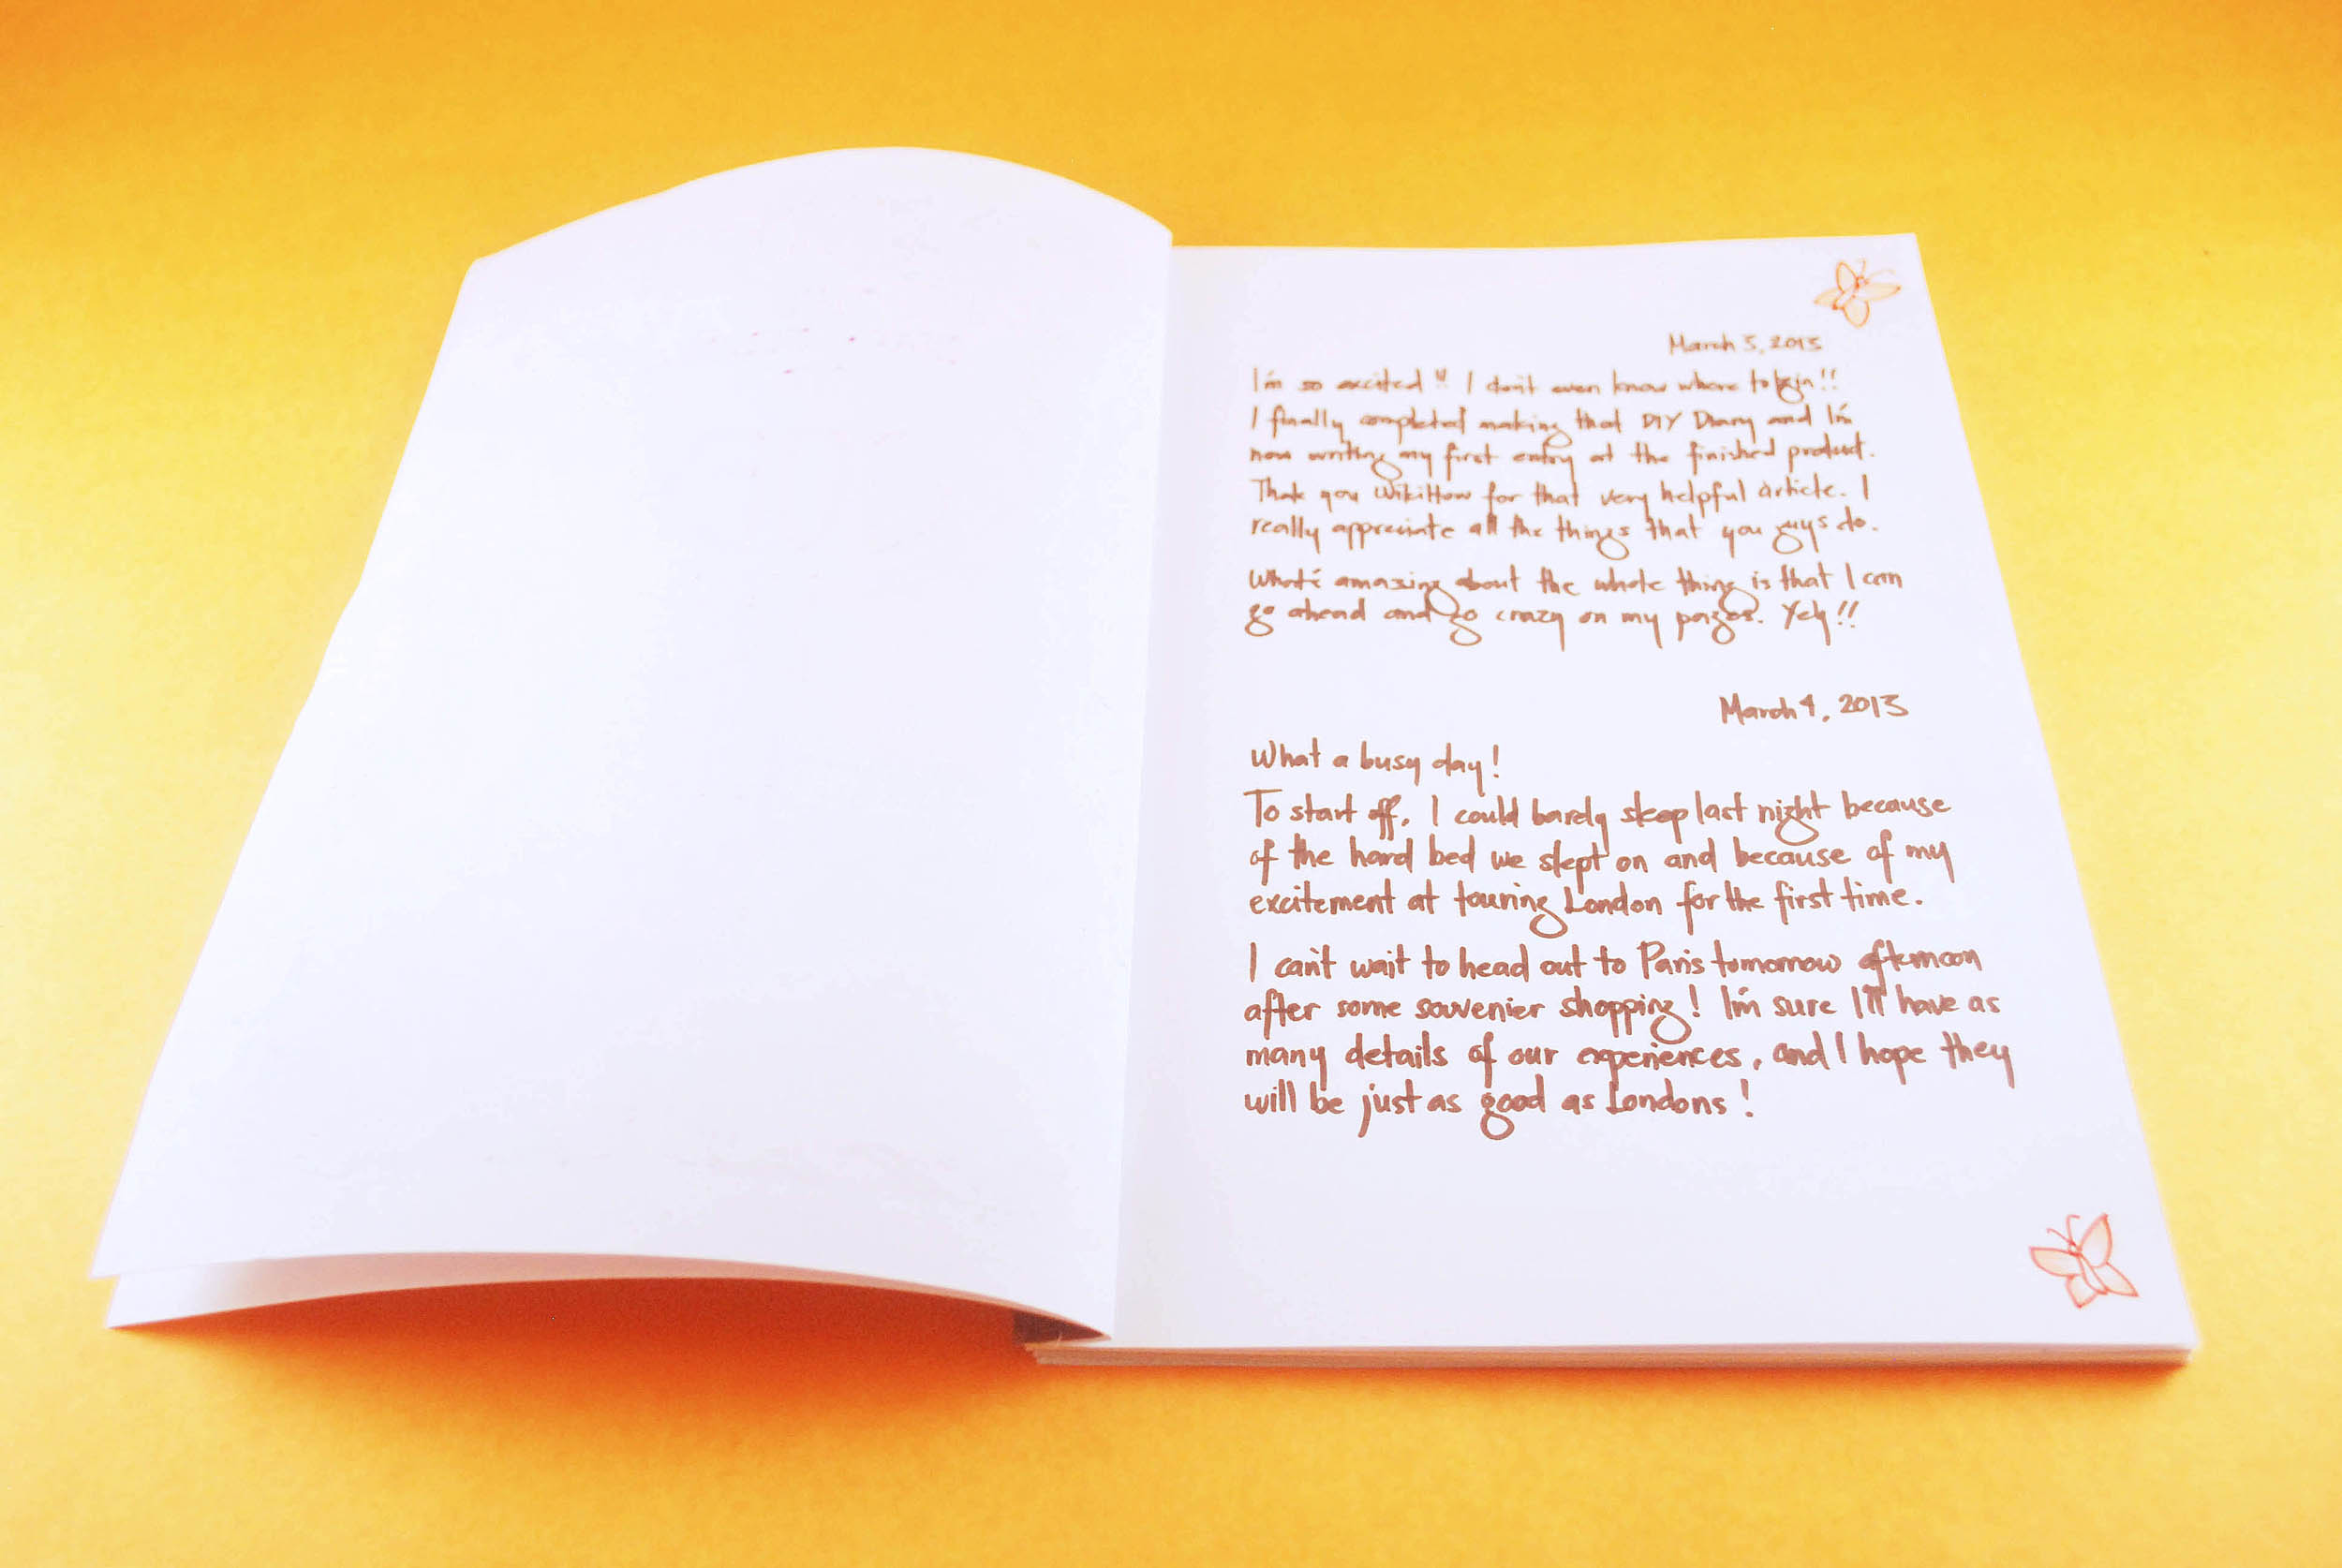 March 3, 2013
I'm so excited!! I don't even know where to begin!!
I finally completed making that DIY Diary and I'm
now writing my first entry at the finished product.
Thak you WikiHow for that very helpful article. I
really appreciate all the things that you guys do.
What's amazing about the whole thing is that I can
go ahead and go crazy on my pages. Yey!!
March 4, 2013
What a busy day!
To start off, I could barely sleep last night because
of the hard bed we slept on and because of my
excitement at touring London for the first time.
I can't wait to head out to Paris tomorrow afternoon
after some souvenier shopping! I'm sure I'll have as
many details of our experiences, and I hope they
will be just as good as Londons!